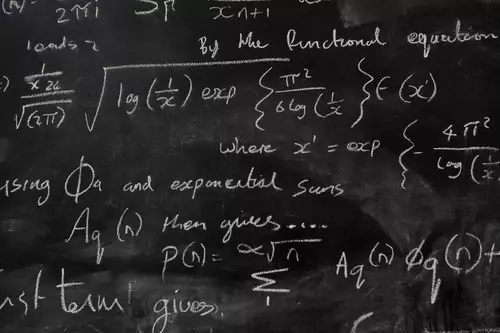 2πi xn+1
leads
By the functional equation
x^(1/24) / √(2π) √ log(1/x) exp { π² / 6 log(1/x) } F(x')
where x' = exp { - 4π² / log(1/x)
using Φa and exponential sums
Aq(n) then gives....
P(n) = α√n
Σ Aq(n) φq(n) +
term' gives.